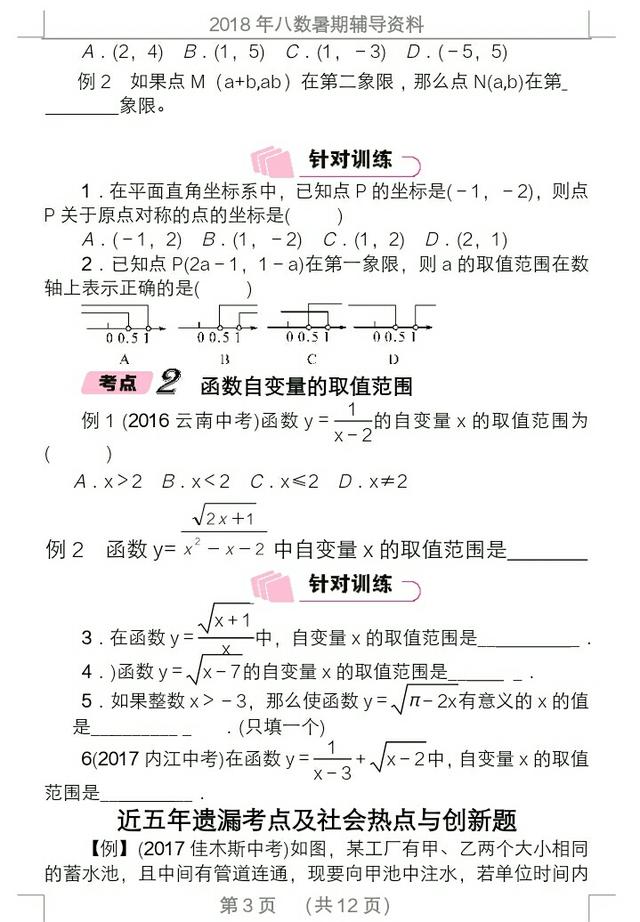 2018 年八数暑期辅导资料
A．(2，4)　B．(1，5)　C．(1，－3)　D．(－5，5)
例 2　如果点 M（a+b,ab）在第二象限，那么点 N(a,b)在第_
________象限。
针对训练
1．在平面直角坐标系中，已知点 P 的坐标是(－1，－2)，则点
P 关于原点对称的点的坐标是(　　)
A．(－1，2)　B．(1，－2)　C．(1，2)　D．(2，1)
2．已知点 P(2a－1，1－a)在第一象限，则 a 的取值范围在数
轴上表示正确的是(　　)
0 0.5 1　0 0.5 1　0 0.5 1　0 0.5 1
A　B　C　D
考点 2　函数自变量的取值范围
例 1 (2016 云南中考)函数 y＝1/(x－2)的自变量 x 的取值范围为
(　　)
A．x＞2　B．x＜2　C．x≤2　D．x≠2
例 2　函数 y= √(2x+1)/(x²－x－2) 中自变量 x 的取值范围是_______
针对训练
3．在函数 y＝√(x＋1)/x中，自变量 x 的取值范围是__________．
4．)函数 y＝√(x－7)的自变量 x 的取值范围是______ _．
5．如果整数 x＞－3，那么使函数 y＝√(π－2x)有意义的 x 的值
是__________ _　．(只填一个)
6(2017 内江中考)在函数 y＝1/(x－3)＋√(x－2)中，自变量 x 的取值
范围是__________．
近五年遗漏考点及社会热点与创新题
【例】(2017 佳木斯中考)如图，某工厂有甲、乙两个大小相同
的蓄水池，且中间有管道连通，现要向甲池中注水，若单位时间内
第 3 页　（共 12 页）